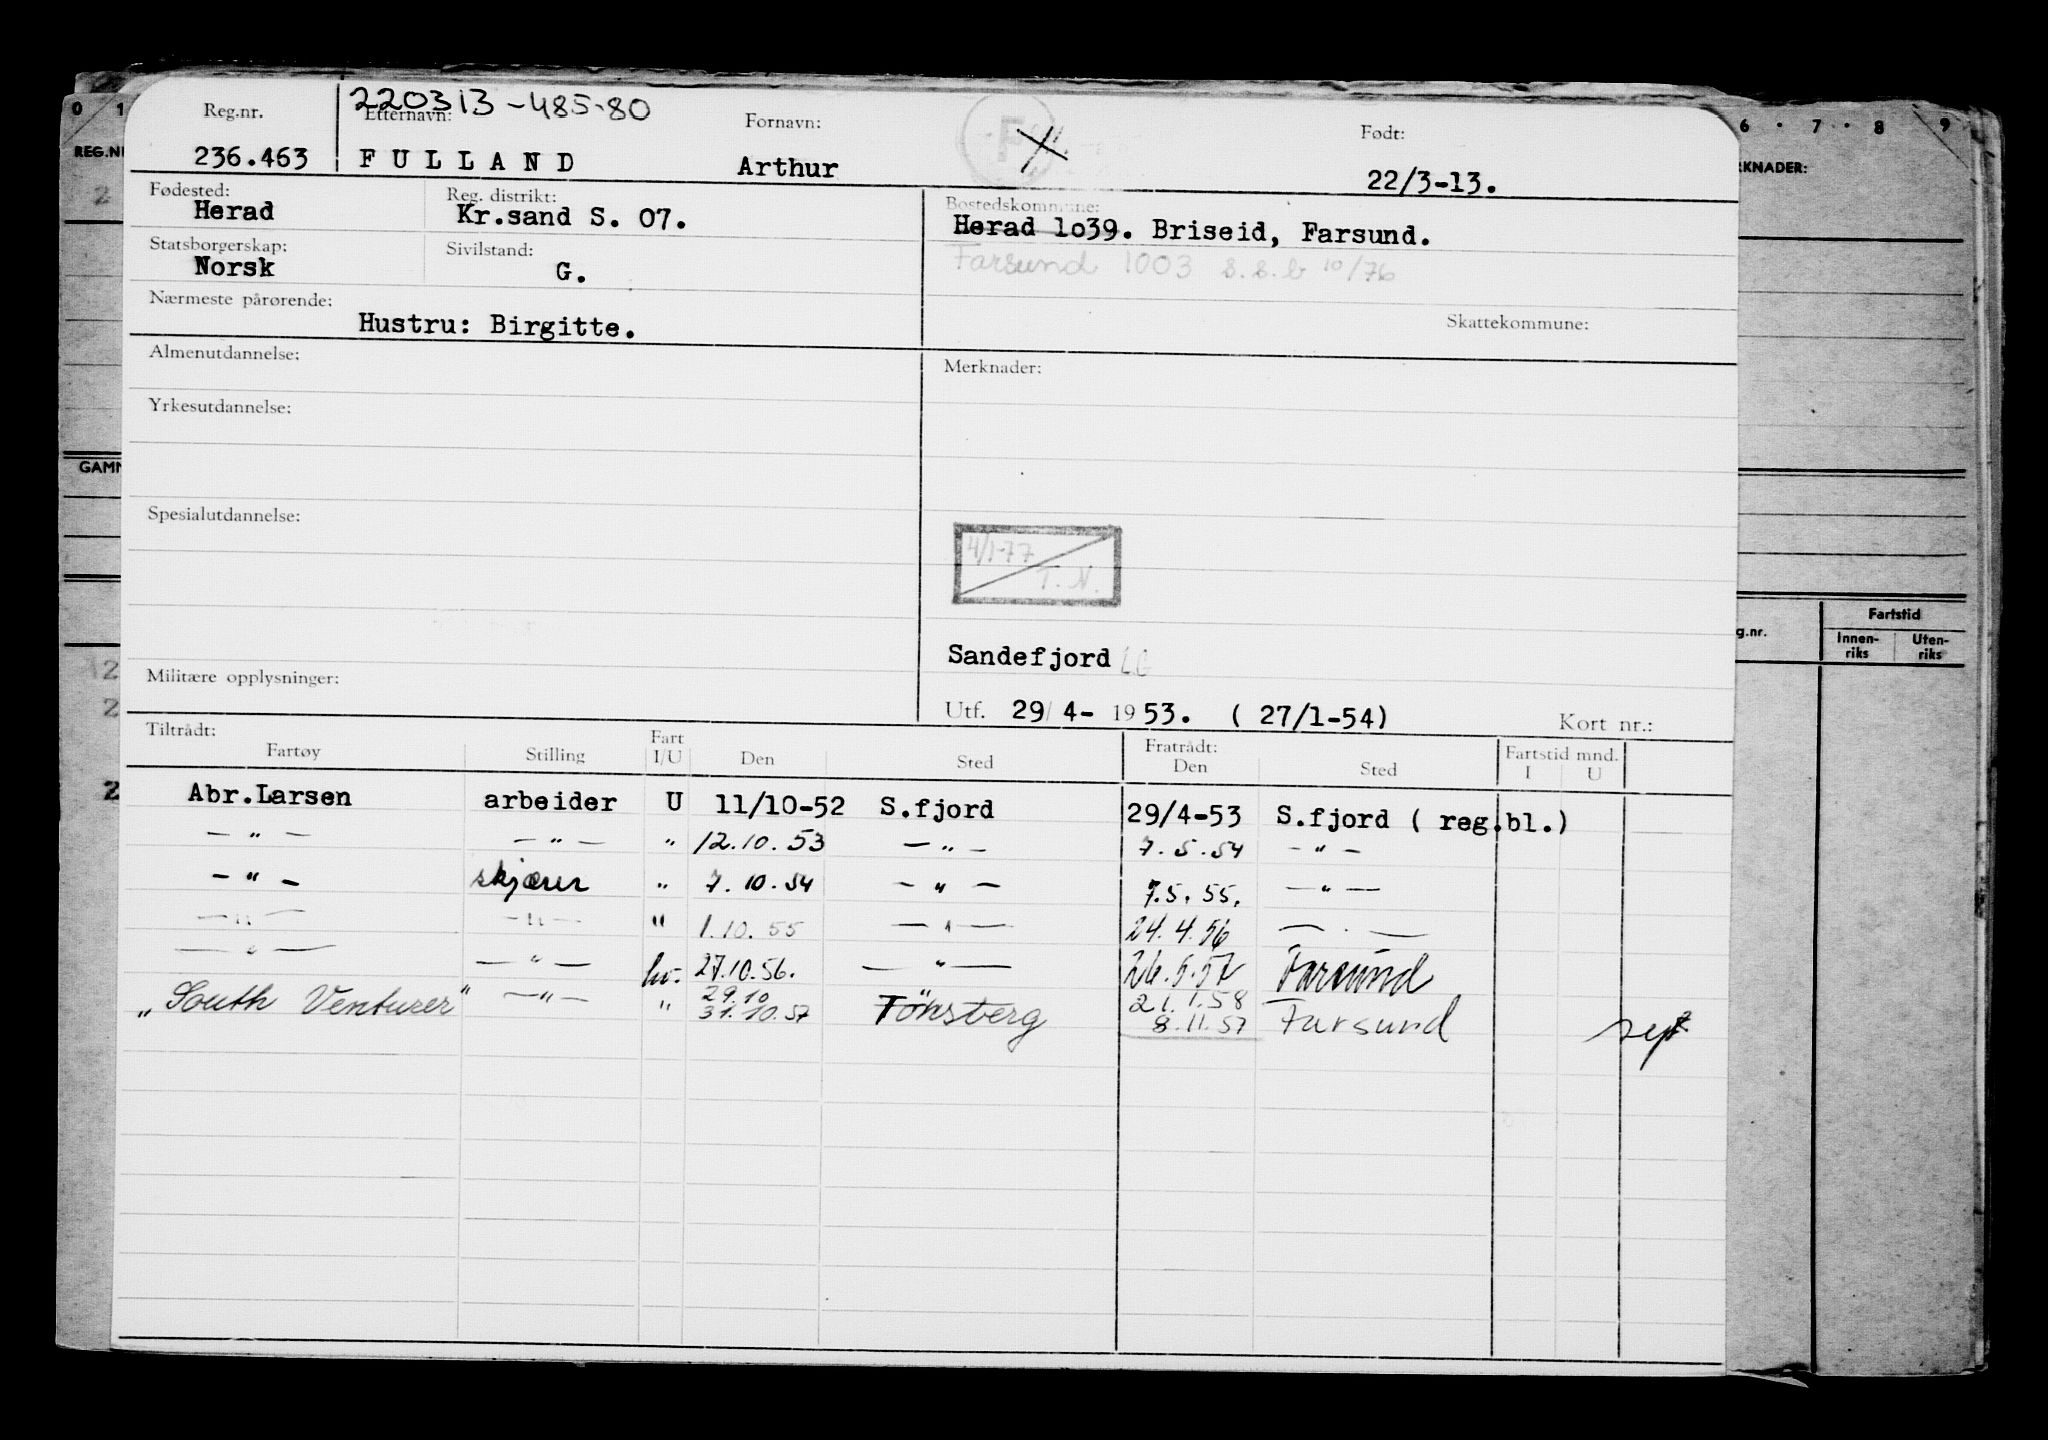 220313-485-80
Reg.nr. Etternavn: Fornavn: Født:
236.463 FULLAND Arthur 22/3-13.
Fødested: Reg. distrikt: Bostedskommune:
Herad Kr.sand S. 07. Herad 1o39. Briseid, Farsund.
Statsborgerskap: Sivilstand: Farsund 1003 s.s.b 10/76
Norsk G.
Nærmeste pårørende: Skattekommune:
Hustru: Birgitte.
Almenutdannelse: Merknader:
Yrkesutdannelse:
Spesialutdannelse:
4/1-77
T.N.
Sandefjord
Militære opplysninger:
Utf. 29/ 4- 1953. ( 27/1-54) Kort nr.:
Tiltrådt: Fratrådt: Fartstid mnd.
Fartøy Stilling Fart I/U Den Sted Den Sted I U
Abr.Larsen arbeider U 11/10-52 S.fjord 29/4-53 S.fjord ( reg.bl.)
— " — — " — " 12.10.53 — " — 7.5.54 — " —
— " — skjærer " 7.10.54 — " — 7.5.55. — " —
— " — — " — " 1.10.55 — " — 24.4.56 — " —
— " — — " — hv. 27.10.56. — " — 26.5.57 Farsund
"South Venturer" — " — " 29.10 31.10.57 Tönsberg 21.1.58 8.11.57 Farsund
0 1 6 · 7 · 8 9
REG.N
RKNADER:
GAMM
g.nr. Fartstid
Innen-riks Uten-riks